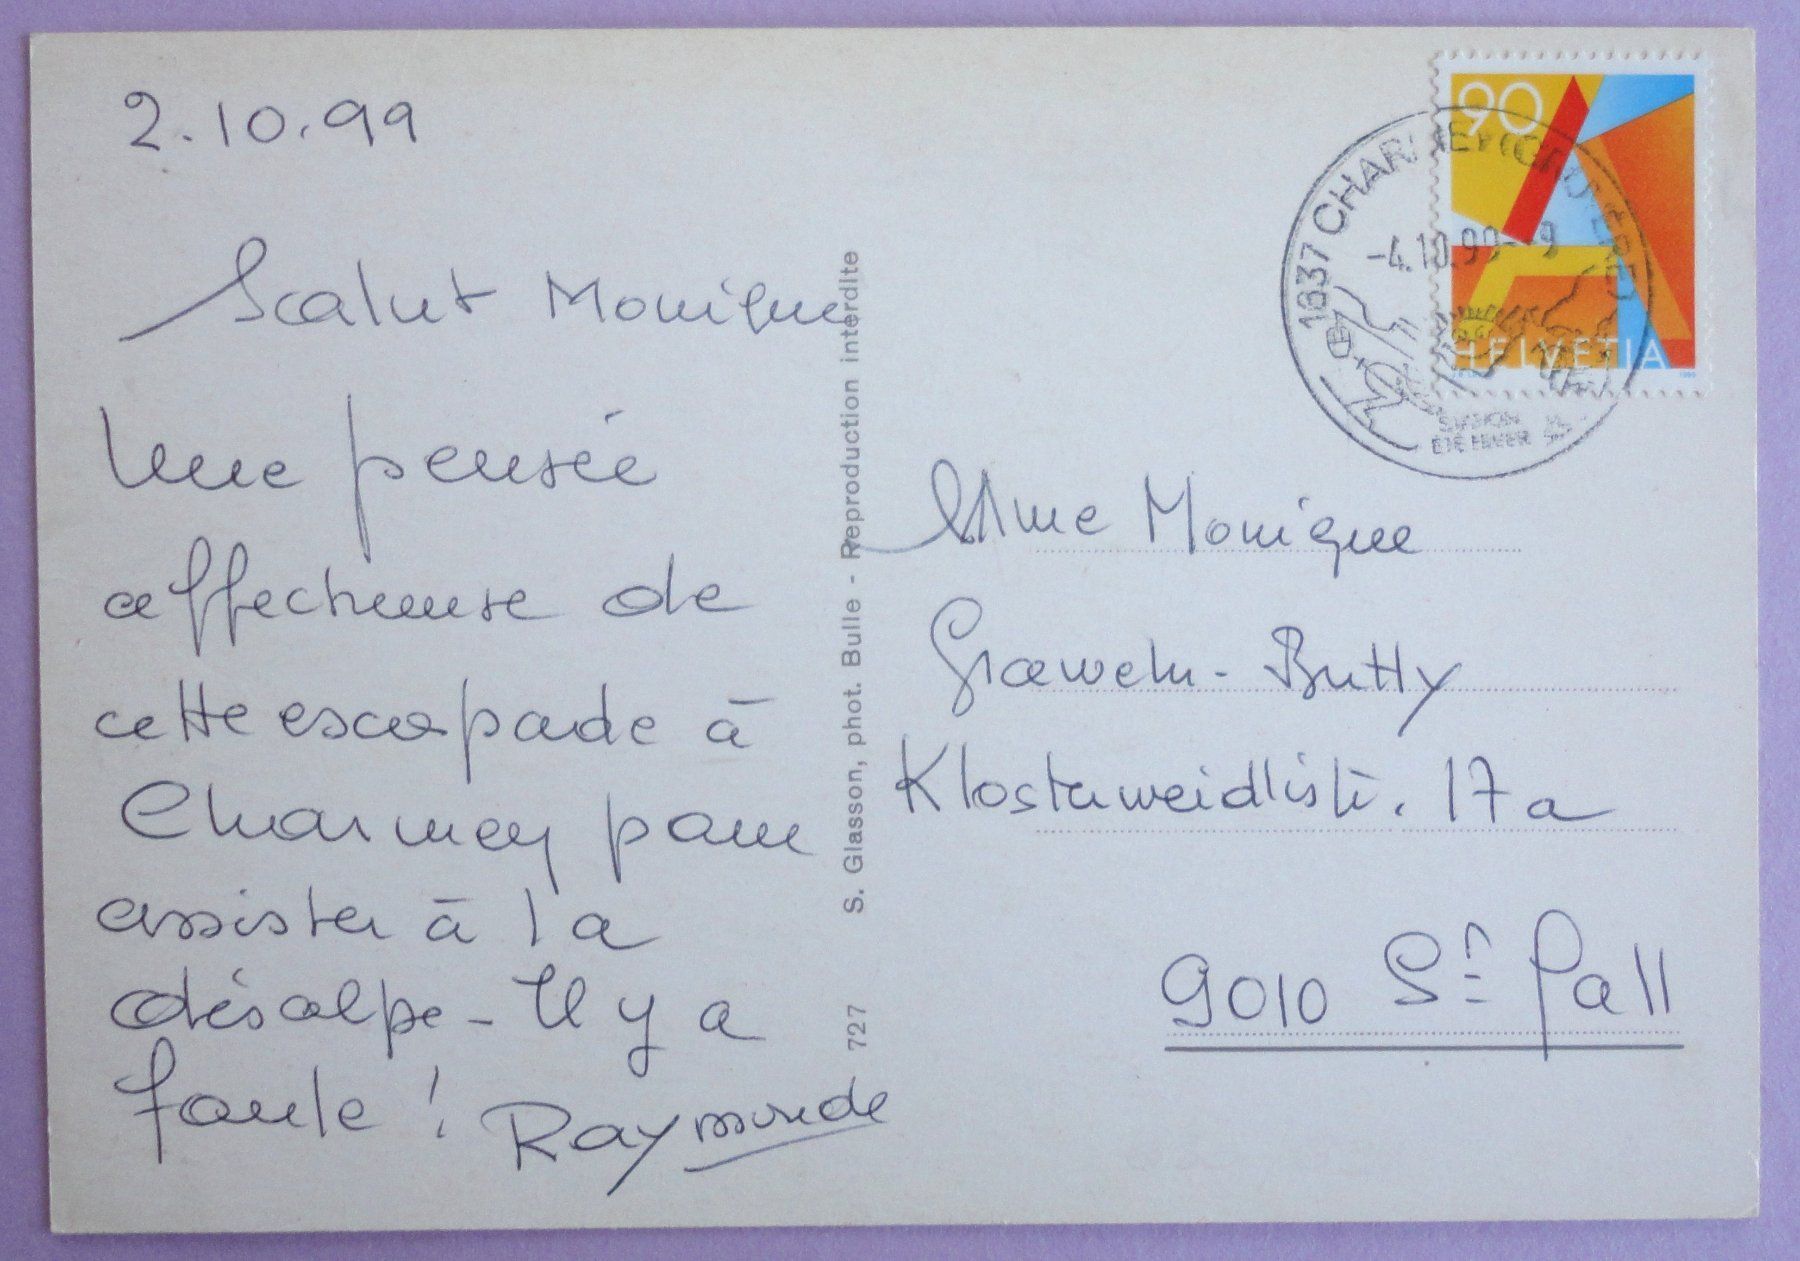 2.10.99
Salut Monique
Une pensée
affectueuse de
cette escapade à
Charmey pour
assister à la
désalpe - Il y a
foule ! Raymonde
S. Glasson, phot. Bulle - Reproduction interdite
727
90
HELVETIA
1637 CHARMEY (GRUYERE)
-4.10.99--9
Mme Monique
Grawehr-Butty
Klosterweidlistr. 17a
9010 St Gall